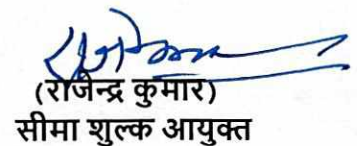 (राजेन्द्र कुमार)
सीमा शुल्क आयुक्त